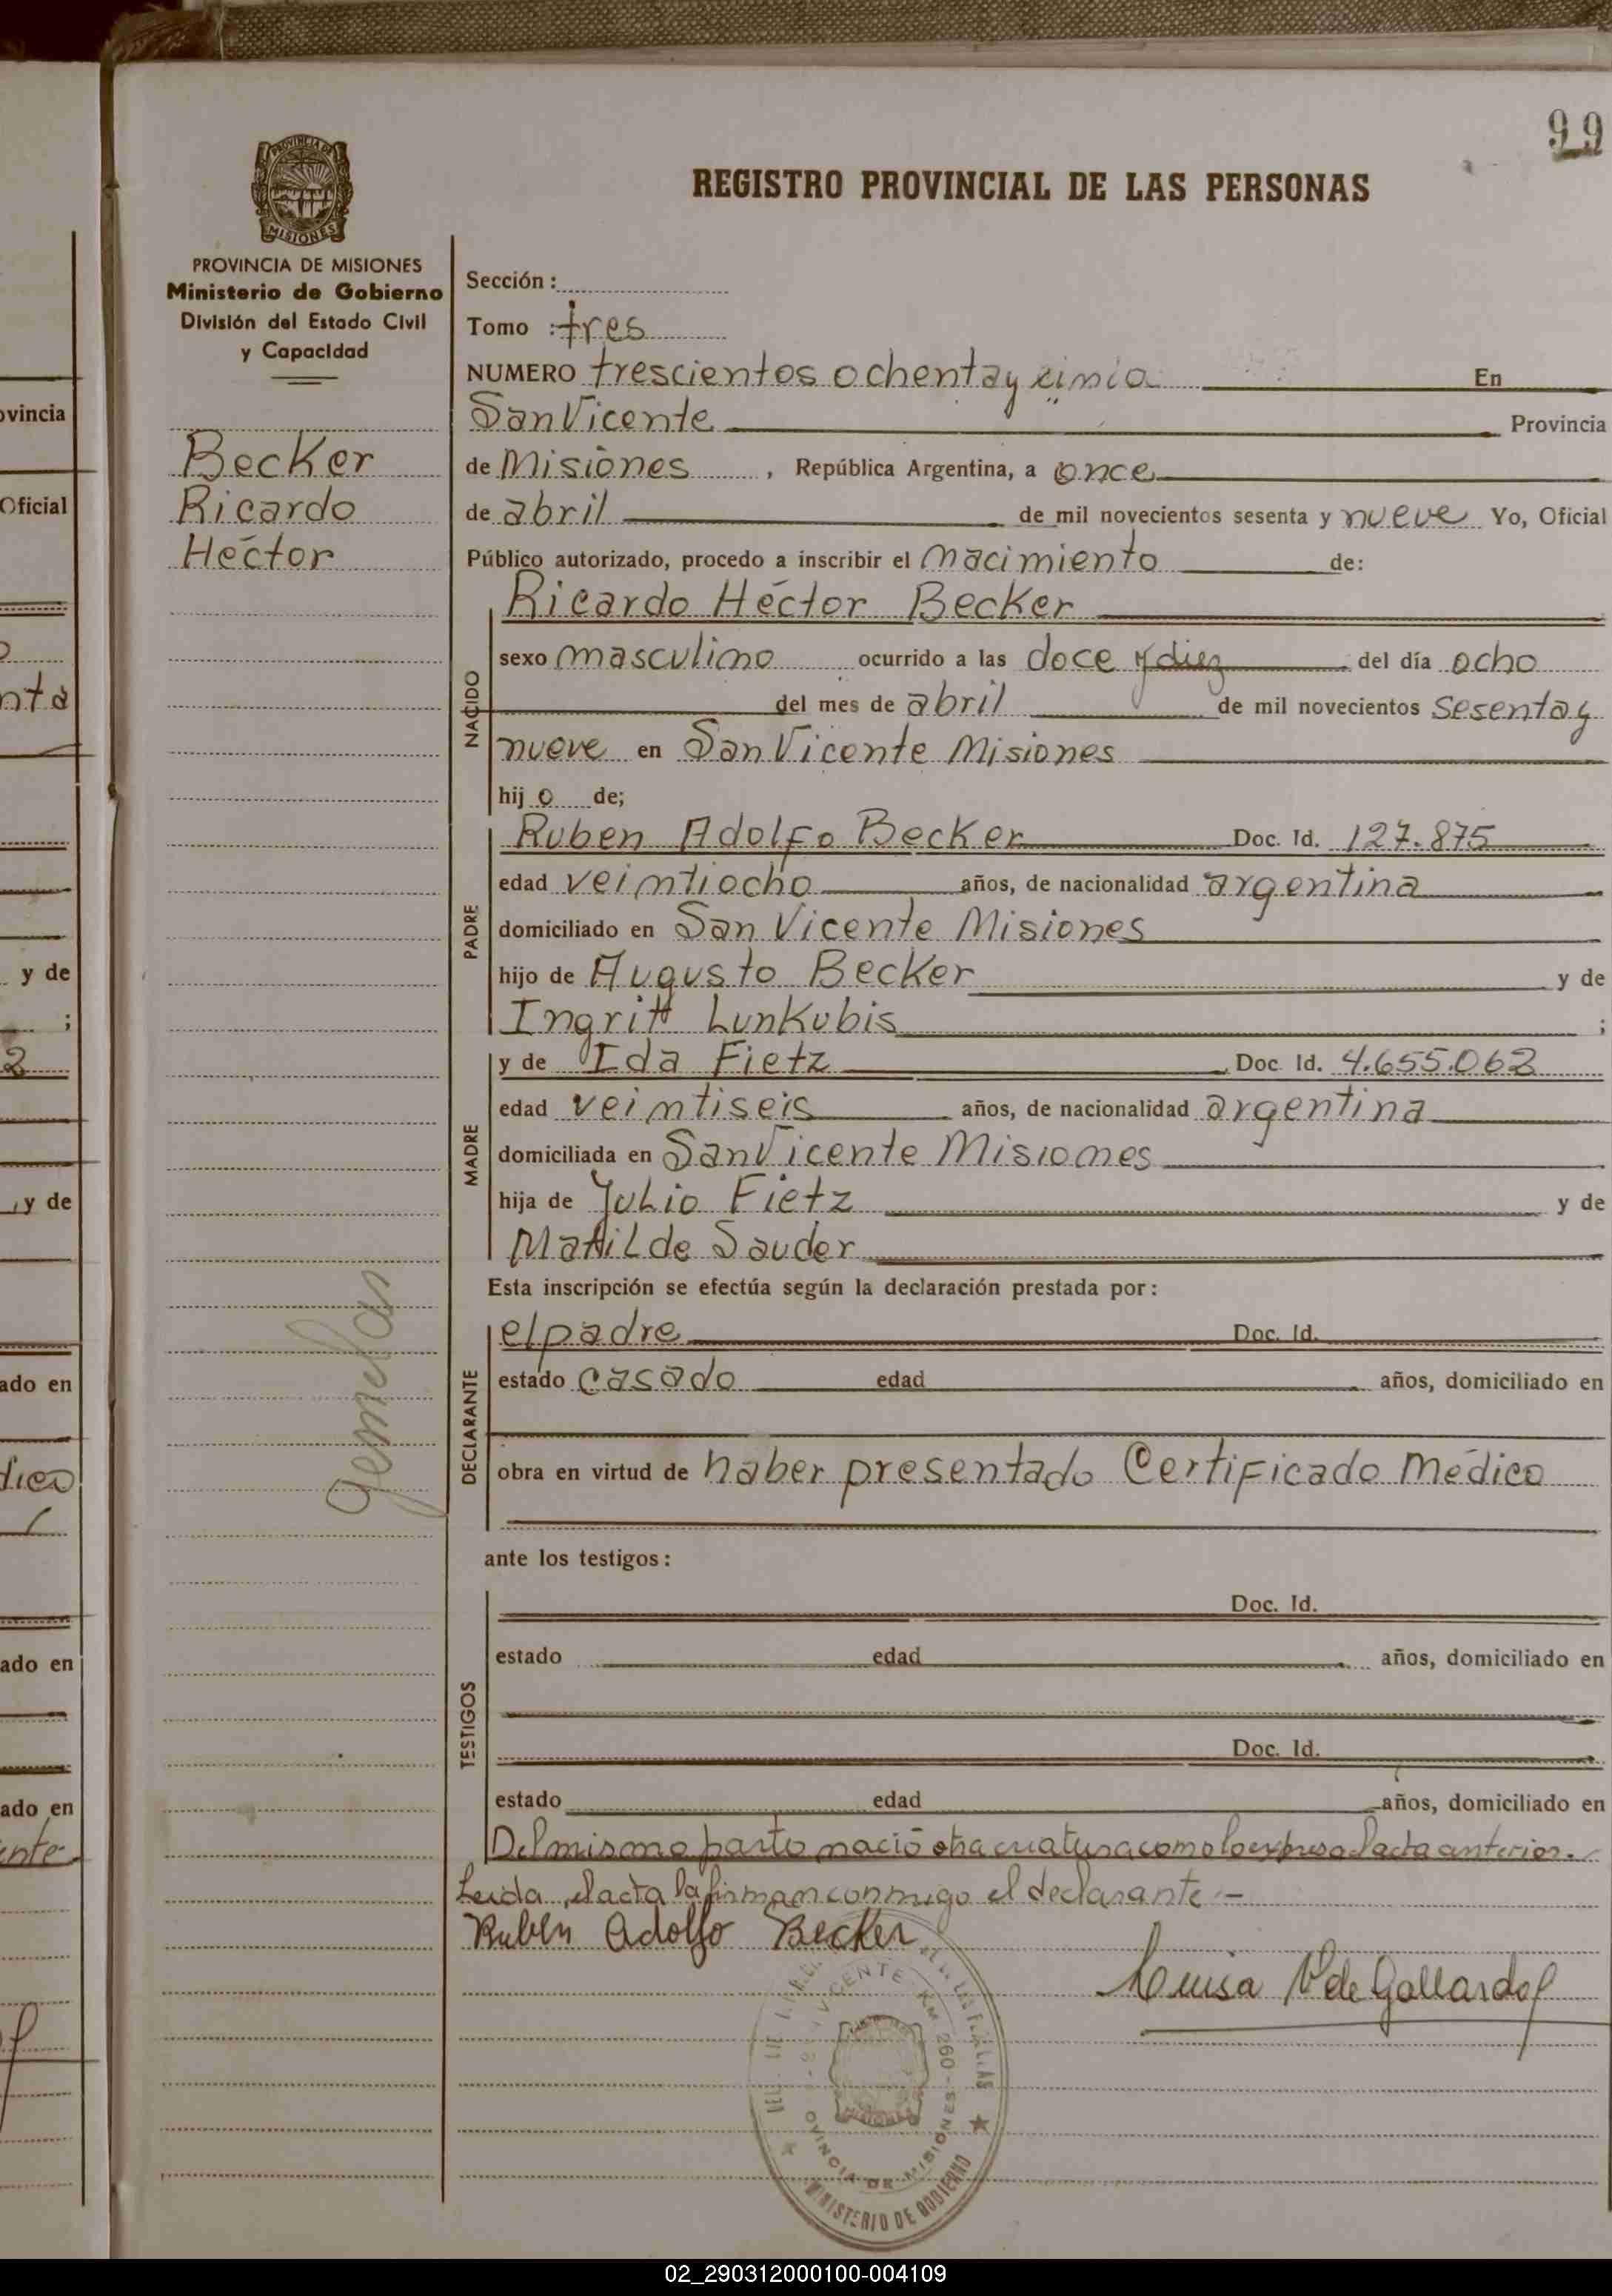 99
PROVINCIA DE MISIONES
REGISTRO PROVINCIAL DE LAS PERSONAS
PROVINCIA DE MISIONES
Ministerio de Gobierno
División del Estado Civil
y Capacidad
Becker
Ricardo
Héctor
gemelar
Sección :
Tomo : tres
NUMERO trescientos ochenta y cinco En
San Vicente Provincia
de Misiones , República Argentina, a once
de abril de mil novecientos sesenta y nueve Yo, Oficial
Público autorizado, procedo a inscribir el nacimiento de:
NACIDO
Ricardo Héctor Becker
sexo masculino ocurrido a las doce y diez del día ocho
del mes de abril de mil novecientos sesenta y
nueve en San Vicente Misiones
hij o de;
PADRE
Ruben Adolfo Becker Doc. Id. 127.875
edad veintiocho años, de nacionalidad argentina
domiciliado en San Vicente Misiones
hijo de Augusto Becker y de
Ingritt Lunkubis ;
MADRE
y de Ida Fietz Doc. Id. 4.655.062
edad veintiseis años, de nacionalidad argentina
domiciliada en San Vicente Misiones
hija de Julio Fietz y de
Matilde Sauder
Esta inscripción se efectúa según la declaración prestada por :
DECLARANTE
el padre Doc. Id.
estado casado edad años, domiciliado en
obra en virtud de haber presentado Certificado Médico
ante los testigos :
TESTIGOS
Doc. Id.
estado edad años, domiciliado en
Doc. Id.
estado edad años, domiciliado en
Del mismo parto nació otra criatura como lo expresa el acta anterior.
Leida el acta la firman conmigo el declarante.—
Rubén Adolfo Becker
Luisa V de Gallardo
VICENTE KM 260 - MISIONES
PROVINCIA DE MISIONES
MINISTERIO DE GOBIERNO
ovincia
Oficial
nta
y de
;
2
y de
ado en
dico
ado en
ado en
ante
02_290312000100-004109